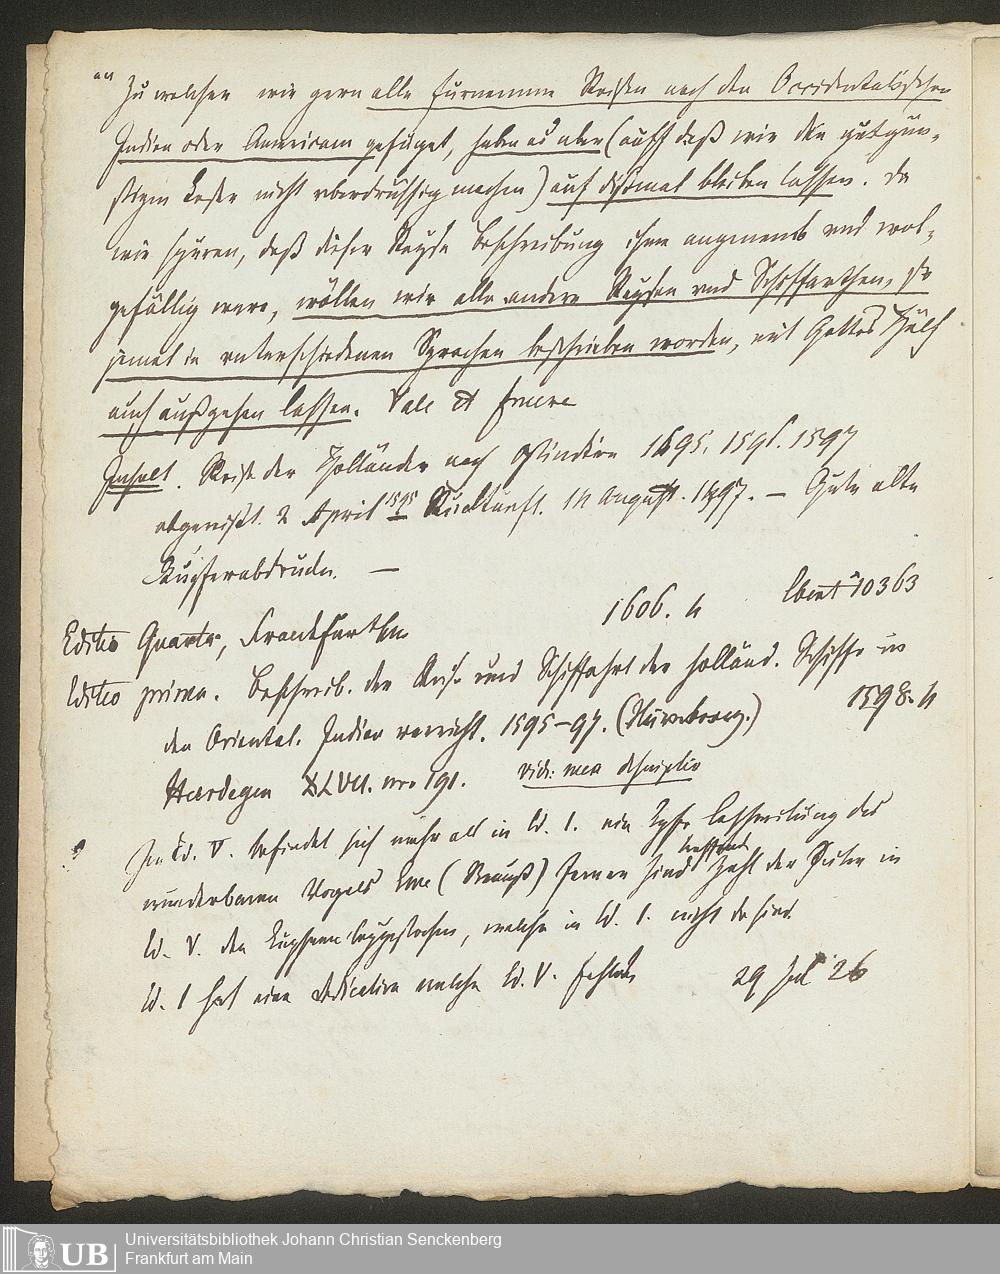 "" Zu welchen wir gern alle furnemme Reisen nach den Occidentalischen
Indien oder Americam gefüget, haben es aber (auff daß wir den gutgün-
stigen Leser nicht uberdrüssig machen) auf dißmal bleiben lassen. Da
wir spüren, daß dieser Reyse Beschreibung ihme angenemb und wol-
gefällig were, wöllen wir alle andere Reysen und Schiffarthen, so
jemals in unterschiedenen Sprachen beschrieben worden, mit Gottes Hülf
auch außgehen lassen. Vale et fruere
Inhalt. Reise der Holländer nach Ostindien 1595. 1596. 1597
abgereißt. 2 April 1595 Rückkunft. 14 August. 1597. — Gute alte
Kupferabdrucke. —
Editio Quarta, Franckfurt 1606. 4 Ebert 10363
Editio prima. Beschreib. der Reise und Schiffahrt der holländ. Schiffe in
den Oriental. Indien verricht. 1595-97. (Nürnberg.) 1598. 4
Heerdegen nro 191. vid: mea descriptio
In Ed. V. befindet sich mehr als in Ed. 1. ein Beschreibung des
wunderbaren Vogels Eme (Strauß) ferner sind Zahl der Seiten in
Ed. V. den Kupfern beygestochen, welche in Ed. 1. nicht da sind.
Ed. 1 hat eine Dedication welche Ed. V. fehlt 29 Jul 26
UB Universitätsbibliothek Johann Christian Senckenberg
Frankfurt am Main